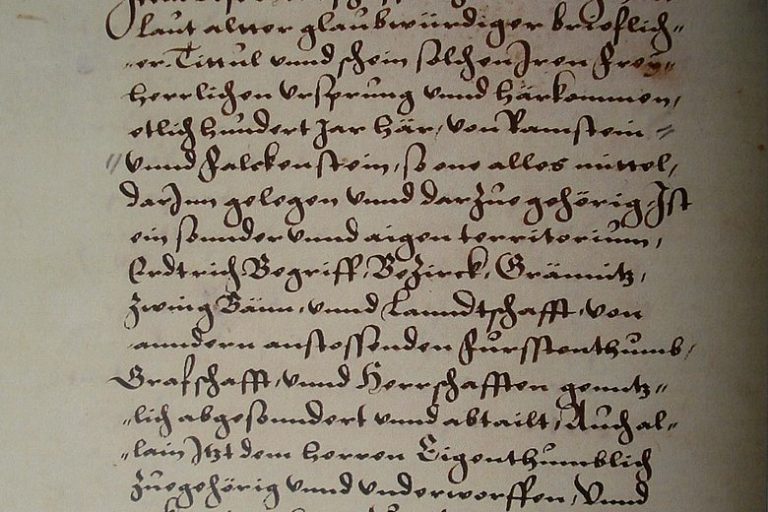 Laut altter glaubwürdiger brieflich=
=er Tittul vnnd schein solchen Iren Frey=
herrlichen vrsprung vnnd härkommen,
etlich hundert Jar här, von Ramstein =
vnnd Falckenstein, so one alles mittel,
darInn gelegen vnnd darzue gehörig, Ist
ein sonnder vnnd aigen territorium,
Erdtrich Begriff, Bezirck, Gränitz,
Zwing Bänn, vnnd Lanndtschafft, von
anndern anstossenden Fursstenthumb,
Grafschafft, vnnd Herrschafften genntz=
=lich abgesonndert vnnd abtailt, Auch al=
=lain Itzt dem herren Eigenthumblich
Zuegehörig vnnd vnderworffen, Vnnd